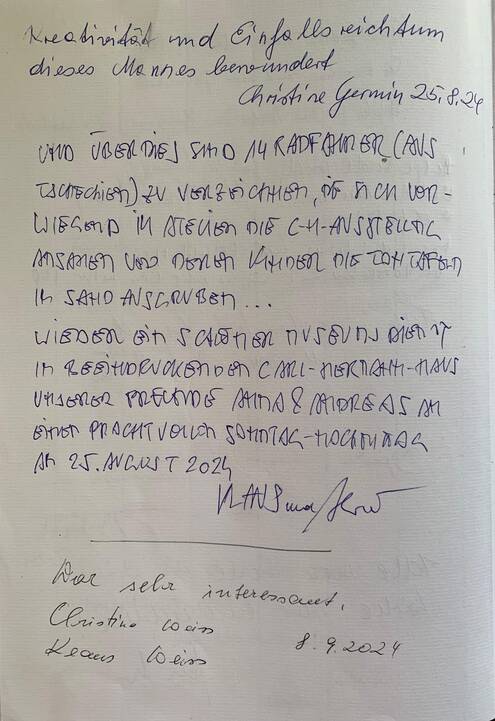 Kreativität und Einfallsreichtum
dieses Mannes bewundert
Christine Germin 25.8.24
UND ÜBERDIES SIND 14 RADFAHRER (AUS
TSCHECHIEN) ZU VERZEICHNEN, DIE SICH VOR-
WIEGEND IM ATELIER DIE C-H-AUSSTELLUNG
ANSAHEN UND DEREN KINDER DIE TONTAFELN
IM SAND AUSGRUBEN...
WIEDER EIN SCHÖNER MUSEUMSDIENST
IM BEEINDRUCKENDEN CARL-HERMANN-HAUS
UNSERER FREUNDE ANNA & ANDREAS AN
EINEM PRACHTVOLLEN SONNTAG-NACHMITTAG
AM 25. AUGUST 2024
KLAUS und
War sehr interessant.
Christina Weiss
Klaus Weiss 8.9.2024